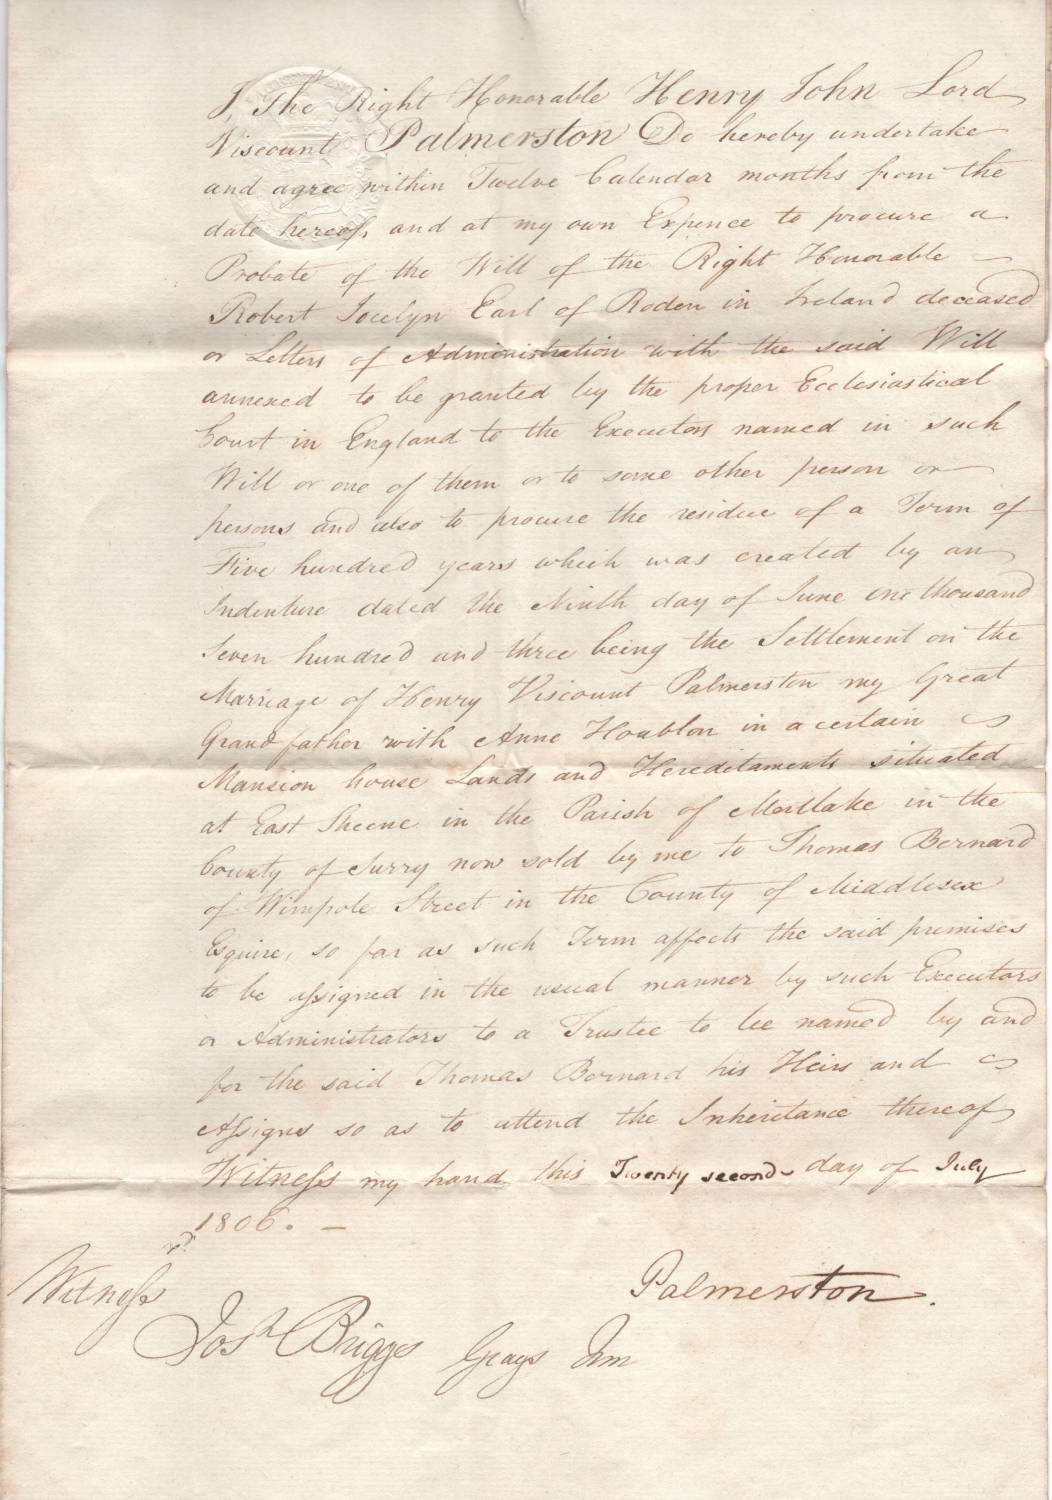 I, The Right Honorable Henry John Lord
Viscount Palmerston Do hereby undertake
and agree within Twelve Calendar months from the
date hereof, and at my own Expence to procure a
Probate of the Will of the Right Honorable –
Robert Jocelyn Earl of Roden in Ireland deceased
or Letters of Administration with the said Will
annexed to be granted by the proper Ecclesiastical
Court in England to the Executors named in such
Will or one of them or to some other person or
persons and also to procure the residue of a Term of
Five hundred years which was created by an
Indenture dated the Ninth day of June one thousand
seven hundred and three being the Settlement on the
Marriage of Henry Viscount Palmerston my Great
Grandfather with Anne Houblon in a certain
Mansion house Lands and Hereditaments situated
at East Sheene in the Parish of Mortlake in the
County of Surry now sold by me to Thomas Bernard
of Wimpole Street in the County of Middlesex
Esquire, so far as such Term affects the said premises
to be assigned in the usual manner by such Executors
or Administrators to a Trustee to be named by and
for the said Thomas Bernard his Heirs and
Assigns so as to attend the Inheritance thereof
Witness my hand this Twenty second day of July
1806. –
Palmerston.
Witness
Josh Briggs Grays Inn